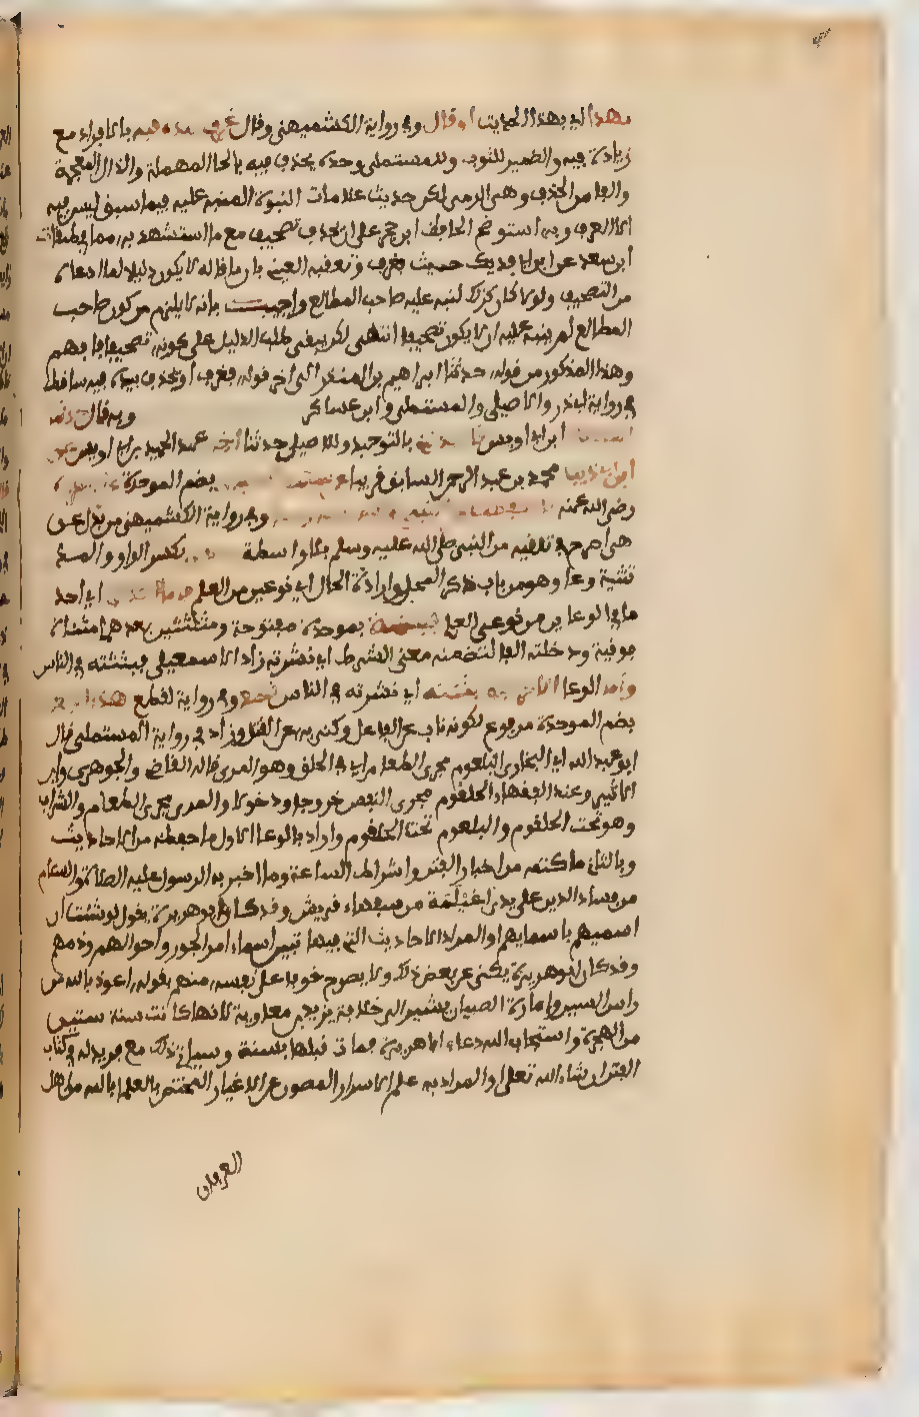 بهذا اي بهذا الحديث او قال وفي رواية الكشميهني وقال غرف بيده فيه بالافراد مع
زيادة فيه والضمير للثوب وللمستملي وحده يحذف فيه بالحا المهملة والذال المعجمة
والفا من الحذف وهو الرمي لكن حديث علامات النبوة المنبه عليه فيما سبق ليس فيه
الا الغرف وبه استوضح الحافظ ابن حجر على ان يحذف تصحيف مع ما استشهد به مما في طبقات
ابن سعد عن ابن ابي فديك حيث فغرف وتعقبه العيني بان ما قاله لا يكون دليلا لما ادعاه
من التصحيف ولو كان كذلك لنبه عليه صاحب المطالع واجيب بانه لا يلزم من كون صاحب
المطالع لم ينبه عليه ان لا يكون تصحيفا انتهى لكن يبقى طلب الدليل على كونه تصحيفا فافهم
وهذا المذكور من قوله حدثنا ابراهيم بن المنذر الى اخر قوله فغرف او يحذف بيده فيه ساقط
في رواية ابي ذر والاصيلي والمستملي وابن عساكر وبه قال
ابن ابي اويس بالتوحيد وللاصيلي حدثنا اخي عبد الحميد بن ابي اويس عن
ابن ابي ذيب محمد بن عبد الرحمن السابق قريبا بضم الموحدة
رضي الله عنه وفي رواية الكشميهني من بدل عن
هي اصرح في تلقيه من النبي صلى الله عليه وسلم بلا واسطة بكسر الواو والمد
تثنية وعا وهو من باب ذكر المحل وارادة الحال اي نوعين من العلم فاما احدهما اي احد
ما في الوعاين من نوعي العلم فبثثته بموحدة مفتوحة ومثلثتين بعدهما مثناة
فوقية ودخلته الفا لتضمنه معنى الشرط اي نشرته زاد الاسمعيلي فبثثته في الناس
واما الوعا الاخر فلو بثثته اي نشرته في الناس لقطع وفي رواية لقطع هذا البلعوم
بضم الموحدة مرفوع لكونه ناب عن الفاعل وكني به عن القتل وزاد في رواية المستملي قال
ابو عبد الله اي البخاري البلعوم مجرى الطعام اي في الحلق وهو المري قاله القاضي والجوهري وابن
الاثير وعند الفقهاء الحلقوم مجرى النفس خروجا ودخولا والمري مجرى الطعام والشراب
وهو تحت الحلقوم والبلعوم تحت الحلقوم واراد بالوعا الاول ما حفظه من الاحاديث
وبالثاني ما كتمه من اخبار الفتن واشراط الساعة وما اخبر به الرسول عليه الصلاة والسلام
من فساد الدين على يدي اغيلمة من سفهاء قريش وقد كان ابو هريرة يقول لو شئت ان
اسميهم باسمايهم او المراد الاحاديث التي فيها تبيين اسماء امراء الجور واحوالهم وذمهم
وقد كان ابو هريرة يكني عن بعض ذلك ولا يصرح خوفا على نفسه منهم بقوله اعوذ بالله من
راس الستين وامارة الصبيان يشير الى خلافة يزيد بن معاوية لانها كانت سنة ستين
من الهجرة واستجاب الله دعاء ابي هريرة فمات قبلها بسنة وسياتي ذلك مع مزيد له في كتاب
الفتن ان شاء الله تعالى او المراد به علم الاسرار المصون عن الاغيار المختص بالعلما بالله من اهل
العرفان